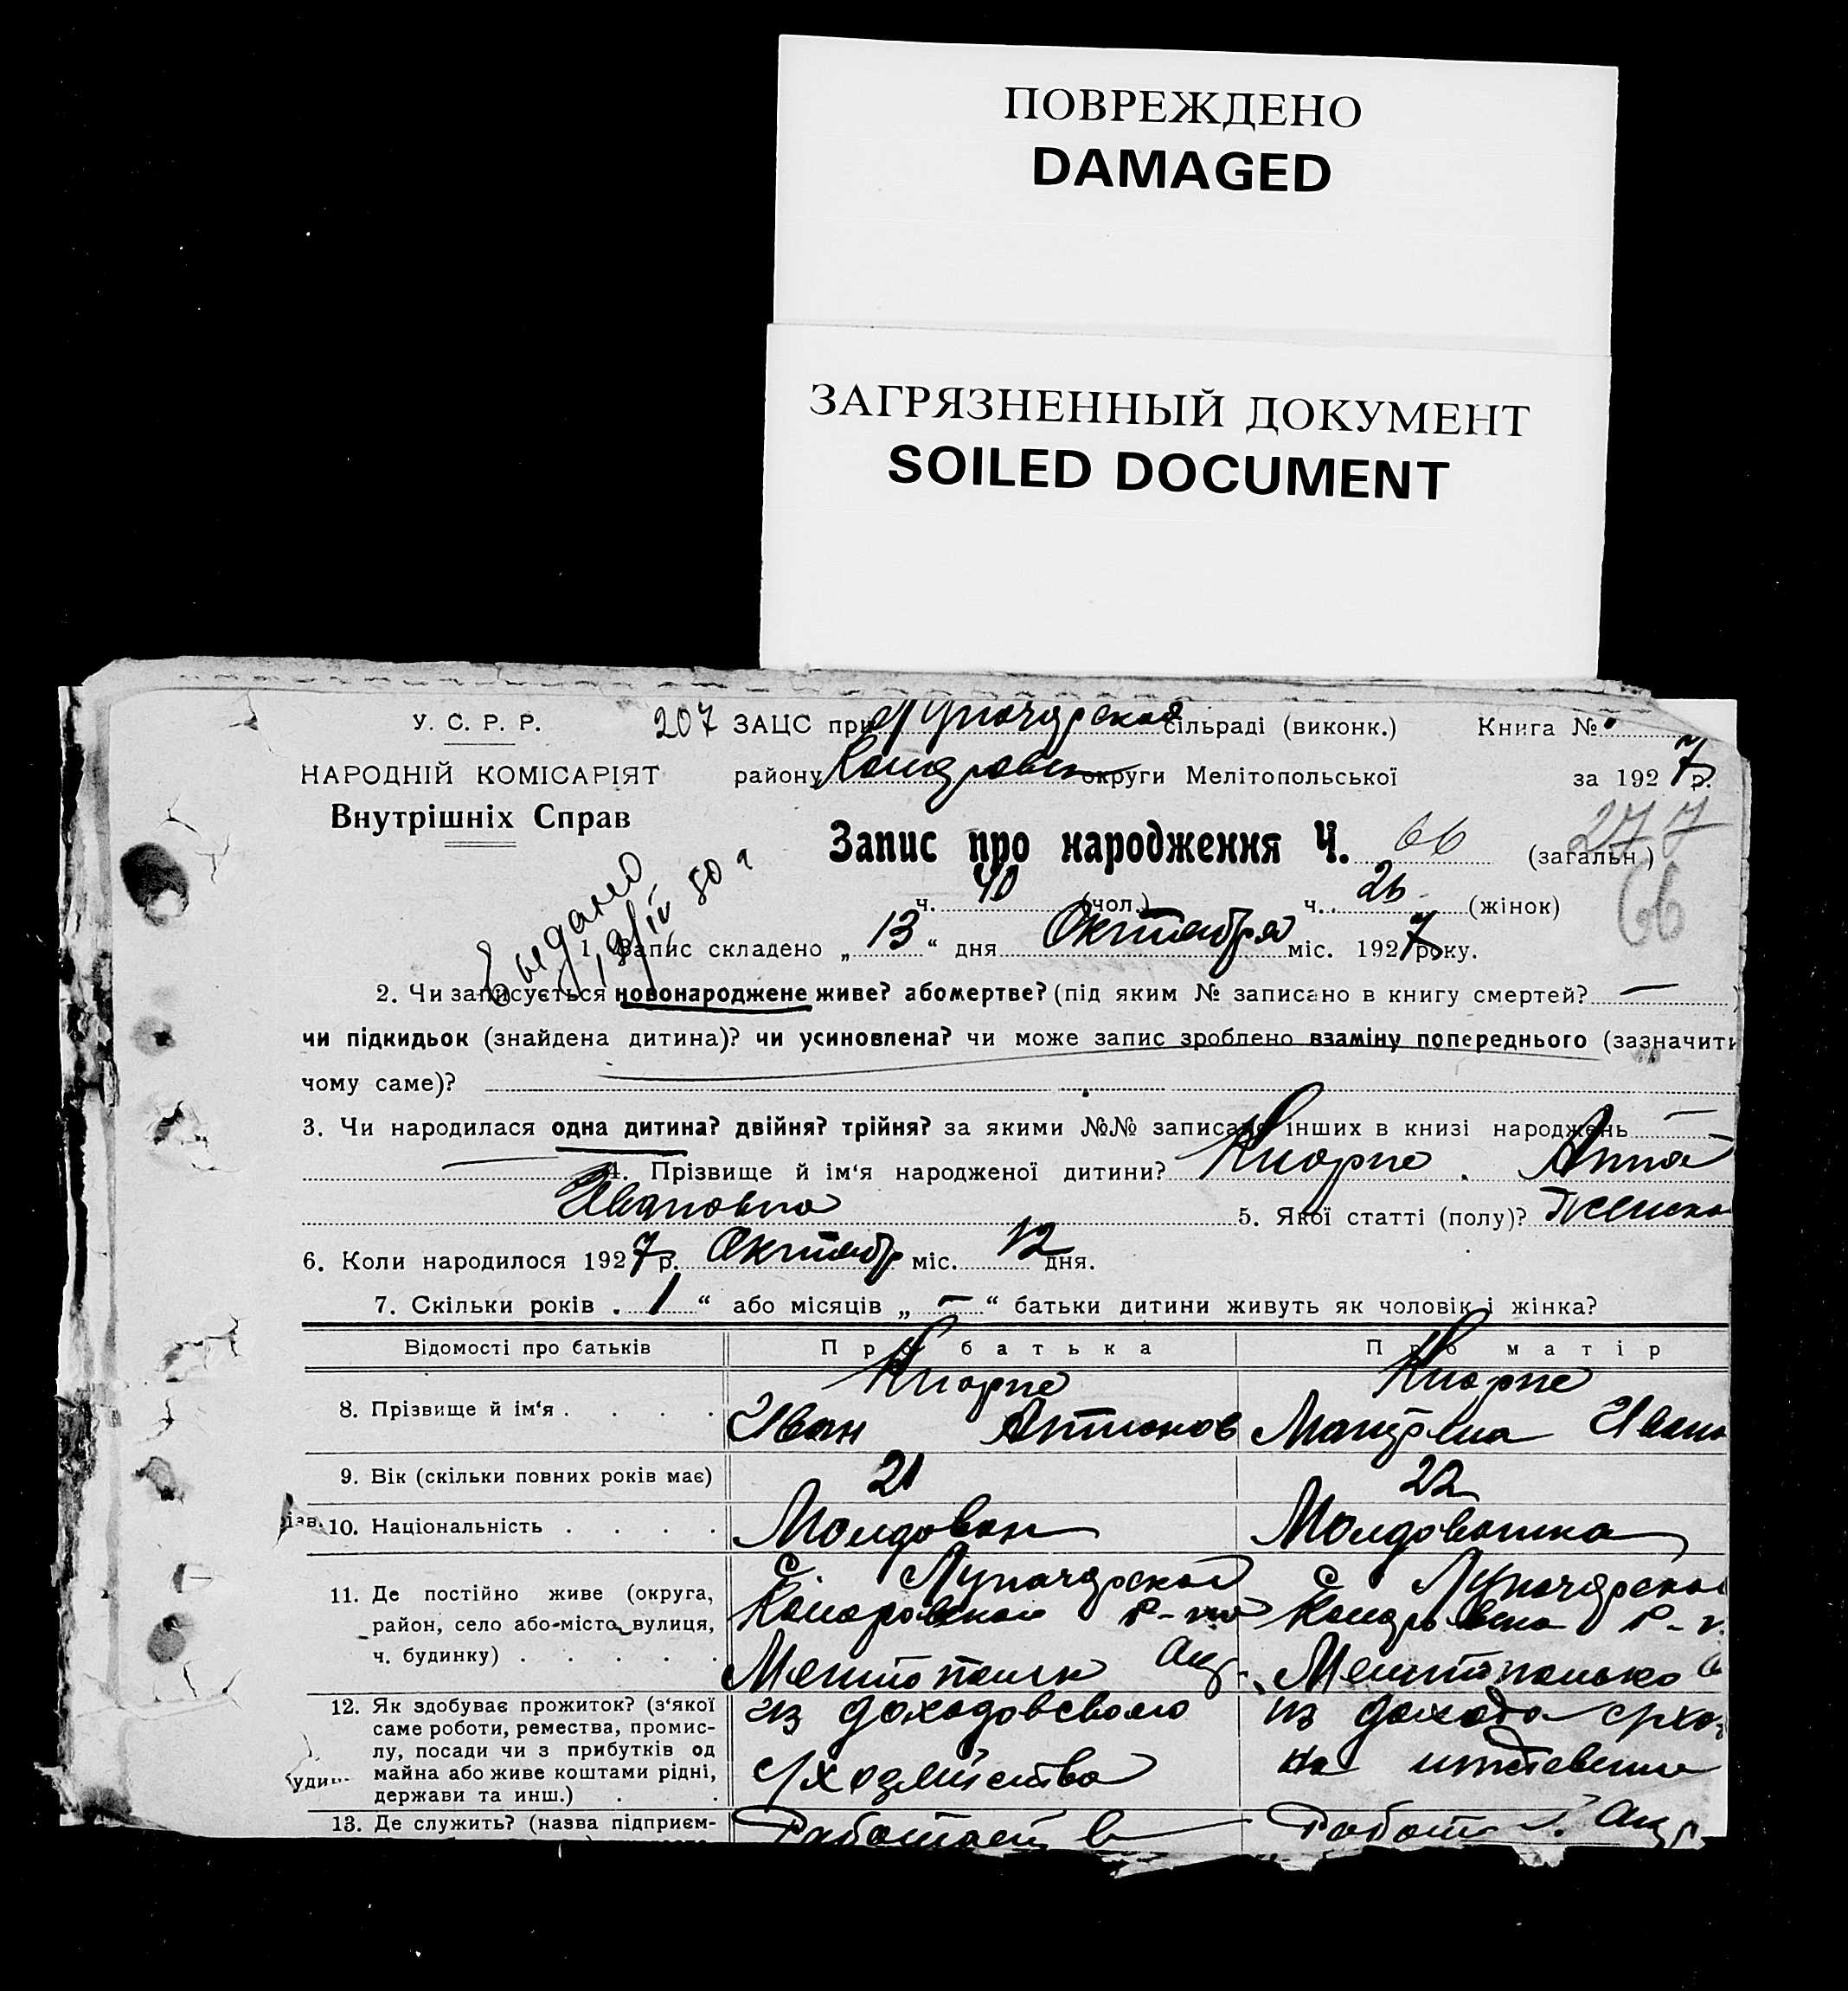 ПОВРЕЖДЕНО
DAMAGED
ЗАГРЯЗНЕННЫЙ ДОКУМЕНТ
SOILED DOCUMENT
У. С. Р. Р. 207 ЗАЦС при Луначарской сільраді (виконк.) Книга №
НАРОДНІЙ КОМІСАРІЯТ району округи Мелітопольської за 1927 р.
Внутрішніх Справ
Запис про народження Ч. 66 (загальн.) 277
ч. 40 (чол.) ч. 26 (жінок) 66
1. Запис складено „13“ дня Октября міс. 1927 року.
2. Чи записується новонароджене живе? або мертве? (під яким № записано в книгу смертей? — )
чи підкидьок (знайдена дитина)? чи усиновлена? чи може запис зроблено взаміну попереднього (зазначити
чому саме)?
3. Чи народилася одна дитина? двійня? трійня? за якими №№ записано інших в книзі народжень —
4. Прізвище й ім‘я народженої дитини? Анна
Ивановна 5. Якої статті (полу)? Женска
6. Коли народилося 1927 р. Октябр міс. 12 дня.
7. Скільки років „1“ або місяців „—“ батьки дитини живуть як чоловік і жінка?
Відомості про батьків Про батька Про матір
8. Прізвище й ім‘я . . . .
Иван Ивано
9. Вік (скільки повних років має) 21 22
10. Національність . . . . Молдован Молдованка
11. Де постійно живе (округа, с. Луначарской с Луначарской
район, село або місто, вулиця, Р-на Р-н
ч. будинку) . . . . . Мелитопольск Окр. Мелитопольско
12. Як здобуває прожиток? (з‘якої из доходов своего из дохода
саме роботи, ремества, промис-
лу, посади чи з прибутків од с/хозяйства на иждевении
майна або живе коштами рідні,
держави та инш.) . .
13. Де служить? (назва підприєм- Работает в